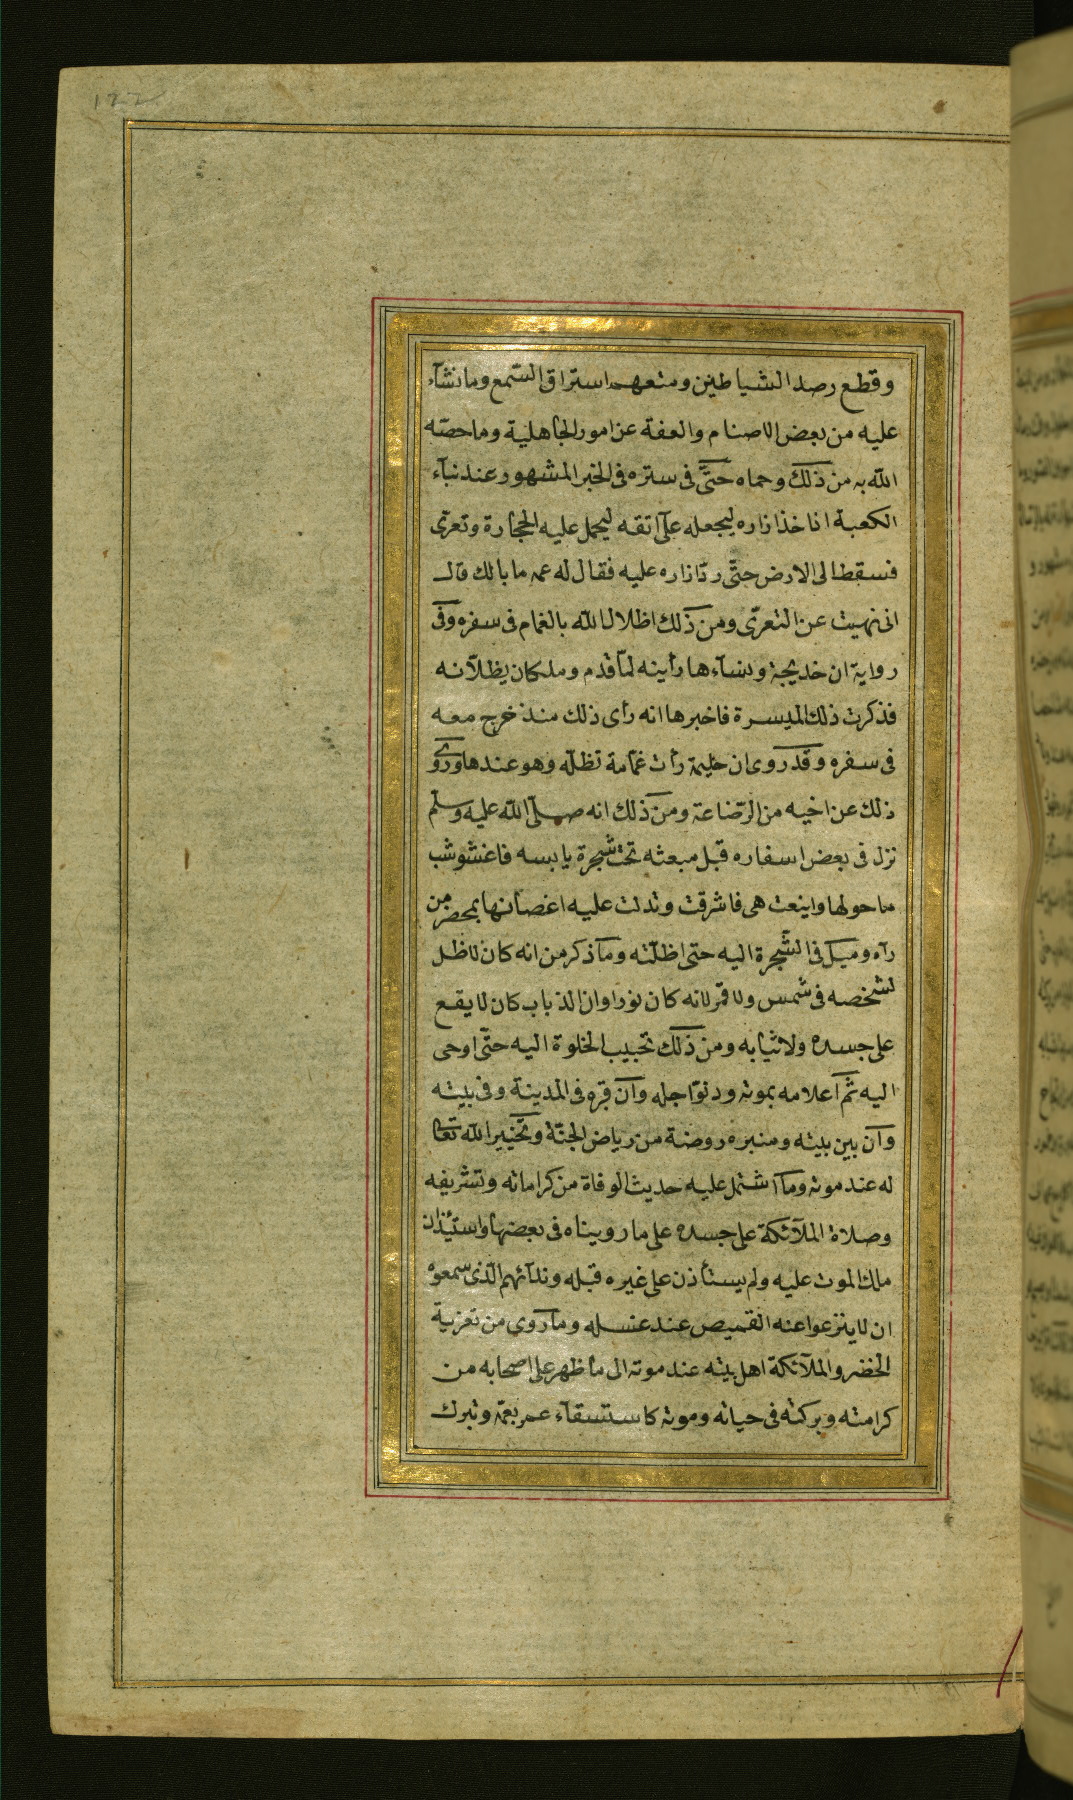 122
وقطع رصد الشياطين ومنعهم استراق السمع ومانشآء
عليه من بعض الاصنام والعفة عن امور الجاهلية وماحصّه
الله به من ذلك وحماه حتّى فى ستره فى الخبر المشهور عند نبآء
الكعبة اذا خذ ازاره ليجعله على اتقه ليحمل عليه الحجارة وتعرّى
فسقط الى الارض حتّى ردّ ازاره عليه فقال له عمه ما بالك قال
انى نهيت عن التعرّى ومن ذلك اظلال الله بالغمام فى سفره وفى
رواية ان خديجة ونسآءها رأينه لمّا قدم وملكان يظلّانه
فذكرت ذلك لميسرة فاخبرها انه رأى ذلك منذ خرج معه
فى سفره وقد روى ان حليمة رأت غمامة تظلّه وهو عندها وروى
ذلك عن اخيه من الرّضاعة ومن ذلك انه صلّى الله عليه وسلّم
نزل فى بعض اسفاره قبل مبعثه تحت شجرة يابسه فاغشوشب
ماحولها واينعت هى فاشرقت وتدلت عليه اغصانها بمحضر من
رآه وميل فى الشّجرة اليه حتى اظلّته وما ذكر من انه كان لاظل
لشخصه فى شمس ولا قمر لانه كان نورا وان الذباب كان لا يقع
على جسده ولاثيابه ومن ذلك تحبيب الخلوة اليه حتّى اوحى
اليه ثم اعلامه بموته ودنوّ اجله وان قبره فى المدينة وفى بيته
وان بين بيته ومنبره روضة من رياض الجنّة وتخيير الله تعا
له عند موته وما اشتمل عليه حديث الوفاة من كراماته وتشريفه
وصلاة الملآئكة على جسده على ما رويناه فى بعضها واستيذان
ملك الموت عليه ولم يستأذن على غيره قبله وندآئهم الّذى سمعوه
ان لا ينزعوا عنه القميص عند غسله وما روى من تعزية
الخضر والملآئكة اهل بيته عند موته الى ما ظهر على اصحابه من
كرامته وبركته فى حياته وموته كاستسقآء عمر بعمّه وتبرك